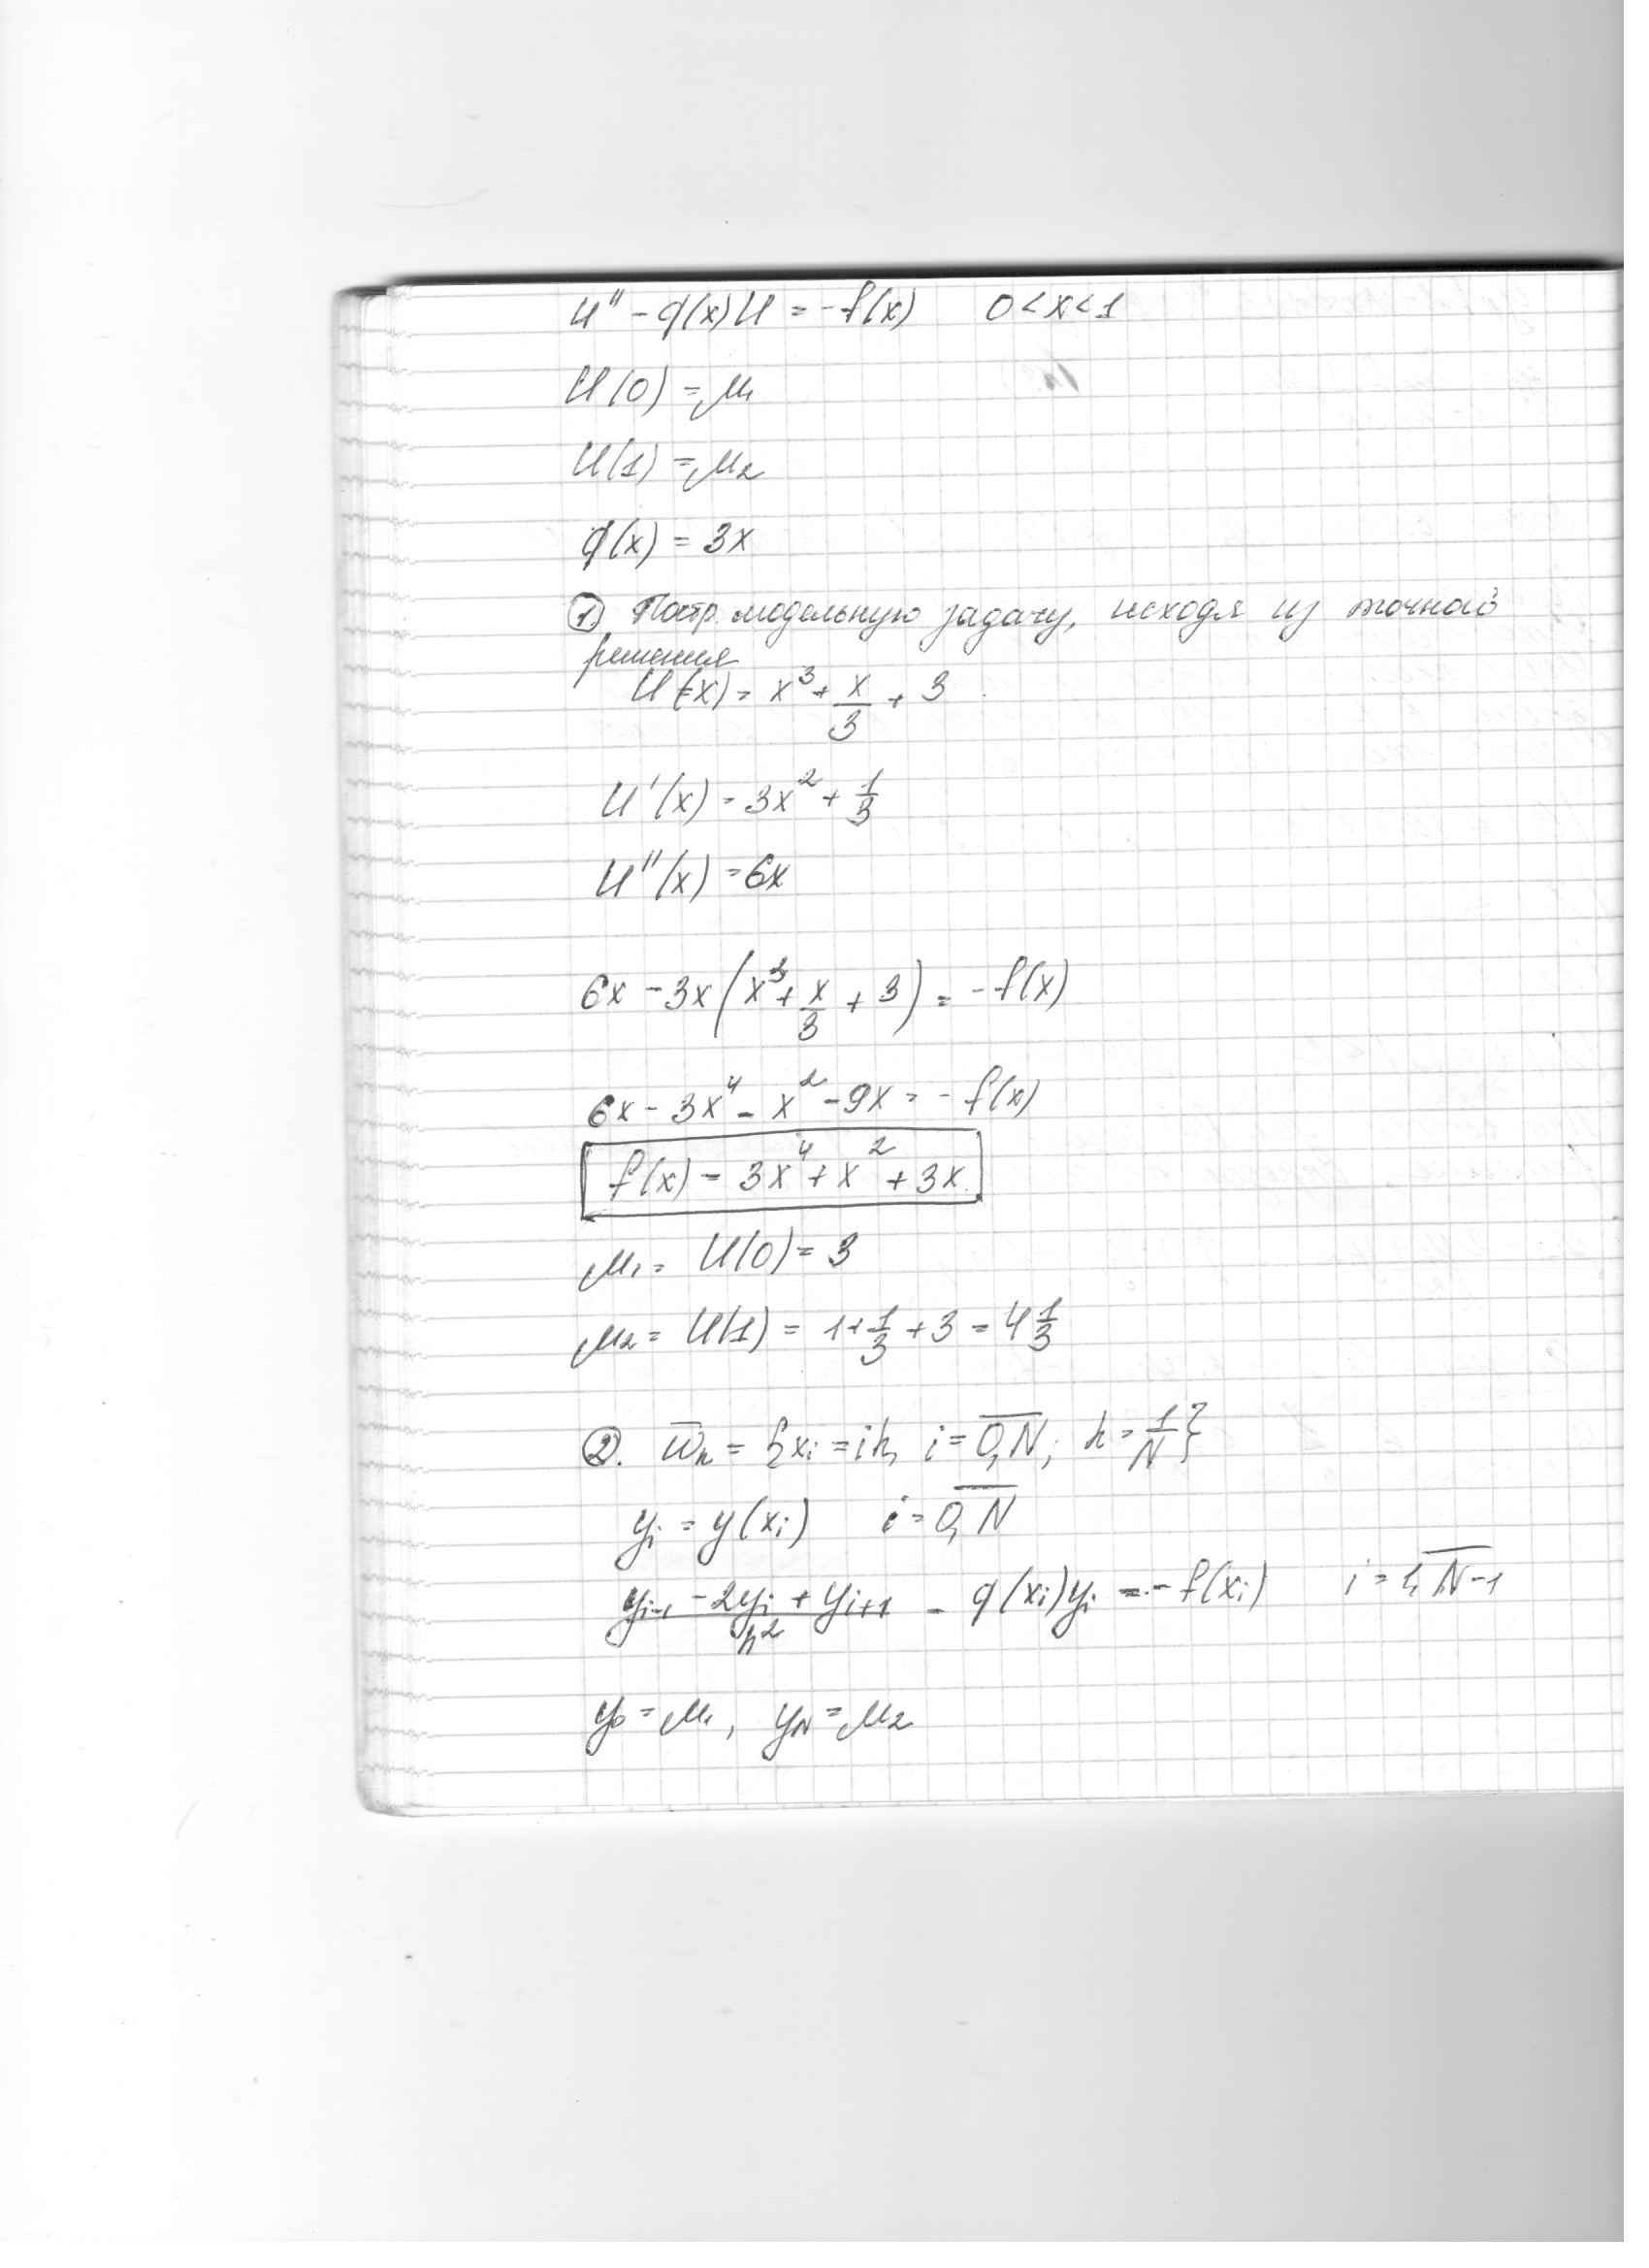 u'' - q(x)u = -f(x)    0 < x < 1
u(0) = μ₁
u(1) = μ₂
q(x) = 3x
① Постр. модельную задачу, исходя из точного
решения
u(x) = x³ + x/3 + 3
u'(x) = 3x² + 1/3
u''(x) = 6x
6x - 3x(x³ + x/3 + 3) = -f(x)
6x - 3x⁴ - x² - 9x = -f(x)
f(x) = 3x⁴ + x² + 3x
μ₁ = u(0) = 3
μ₂ = u(1) = 1 + 1/3 + 3 = 4 1/3
②. ω̅ₕ = {xᵢ = ih, i = 0,N; h = 1/N}
yᵢ = y(xᵢ)    i = 0,N
(yᵢ₋₁ - 2yᵢ + yᵢ₊₁)/h² - q(xᵢ)yᵢ = -f(xᵢ)    i = 1,N-1
y₀ = μ₁, y_N = μ₂